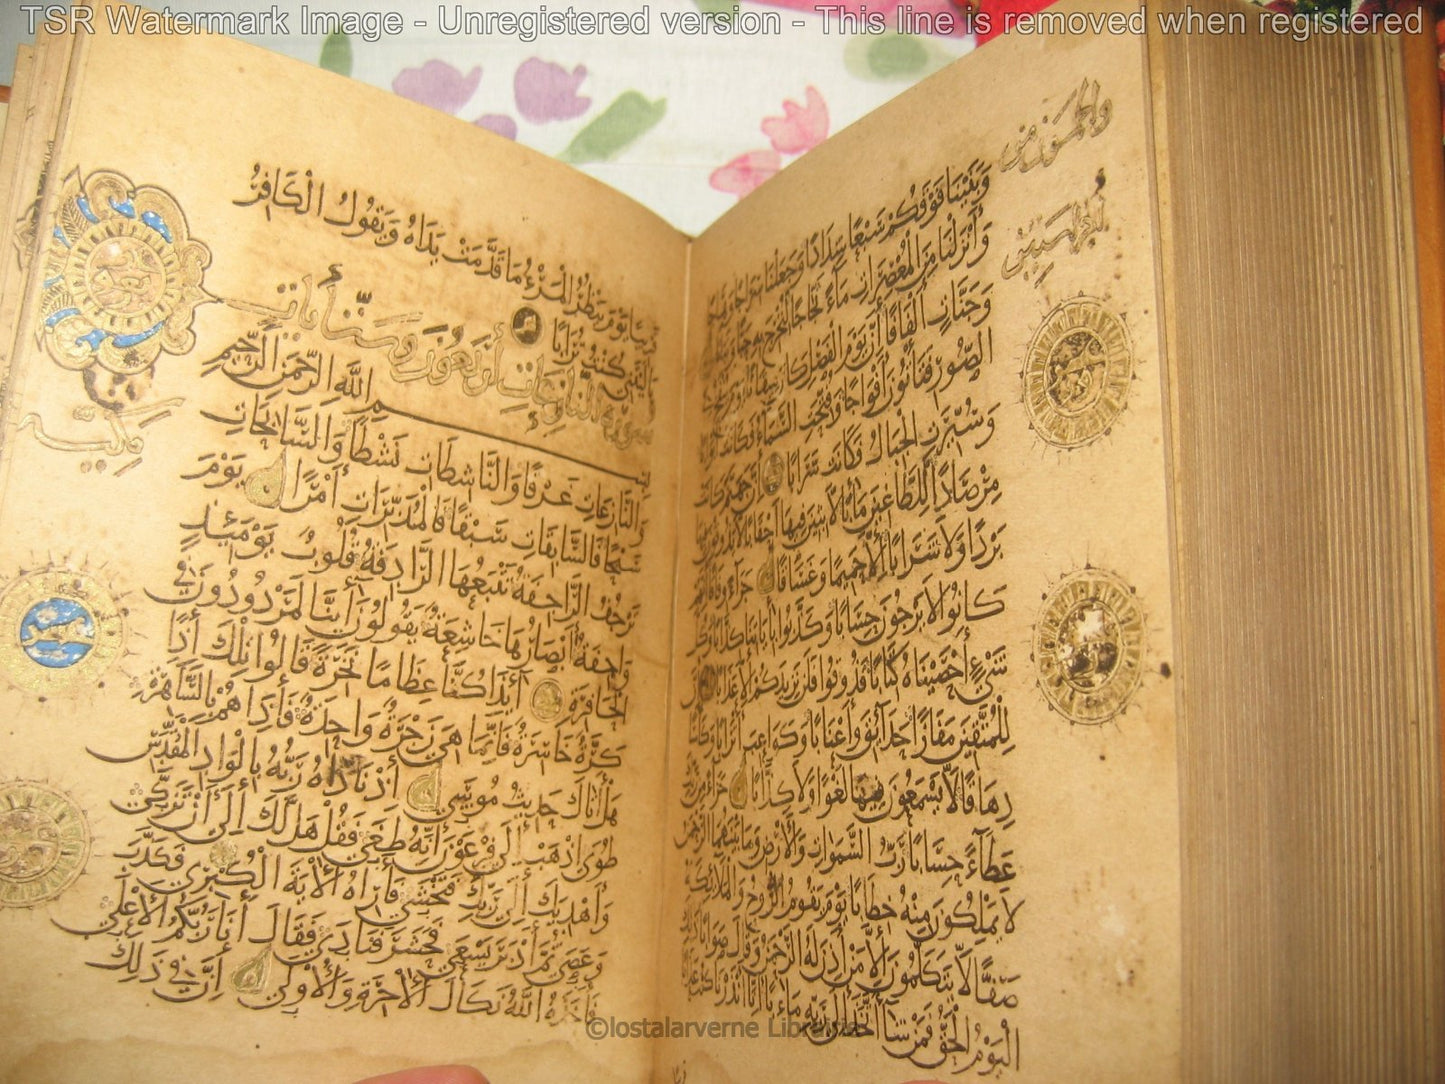 TSR Watermark Image - Unregistered version - This line is removed when registered
وبنينا فوقكم سبعا شدادا وجعلنا سراجا وهاجا
وأنزلنا من المعصرات ماء ثجاجا لنخرج به حبا ونباتا
وجنات ألفافا إن يوم الفصل كان ميقاتا يوم ينفخ في
الصور فتأتون أفواجا وفتحت السماء فكانت أبوابا
وسيرت الجبال فكانت سرابا إن جهنم كانت
مرصادا للطاغين مآبا لابثين فيها أحقابا لا يذوقون فيها
بردا ولا شرابا إلا حميما وغساقا جزاء وفاقا إنهم
كانوا لا يرجون حسابا وكذبوا بآياتنا كذابا وكل
شيء أحصيناه كتابا فذوقوا فلن نزيدكم إلا عذابا إن
للمتقين مفازا حدائق وأعنابا وكواعب أترابا وكأسا
دهاقا لا يسمعون فيها لغوا ولا كذابا جزاء من ربك
عطاء حسابا رب السموات والأرض وما بينهما الرحمن
لا يملكون منه خطابا يوم يقوم الروح والملائكة
صفا لا يتكلمون إلا من أذن له الرحمن وقال صوابا ذلك
اليوم الحق فمن شاء اتخذ إلى ربه مآبا إنا أنذرناكم عذابا
قريبا يوم ينظر المرء ما قدمت يداه ويقول الكافر
يا ليتني كنت ترابا
سورة النازعات أربعون وست آيات
مكية
بسم الله الرحمن الرحيم
والنازعات غرقا والناشطات نشطا والسابحات
سبحا فالسابقات سبقا فالمدبرات أمرا يوم
ترجف الراجفة تتبعها الرادفة قلوب يومئذ
واجفة أبصارها خاشعة يقولون أئنا لمردودون في
الحافرة أئذا كنا عظاما نخرة قالوا تلك إذا
كرة خاسرة فإنما هي زجرة واحدة فإذا هم بالساهرة
هل أتاك حديث موسى إذ ناداه ربه بالواد المقدس
طوى اذهب إلى فرعون إنه طغى فقل هل لك إلى أن تزكى
وأهديك إلى ربك فتخشى فأراه الآية الكبرى فكذب
وعصى ثم أدبر يسعى فحشر فنادى فقال أنا ربكم الأعلى
فأخذه الله نكال الآخرة والأولى إن في ذلك
©lostalarverne Libre